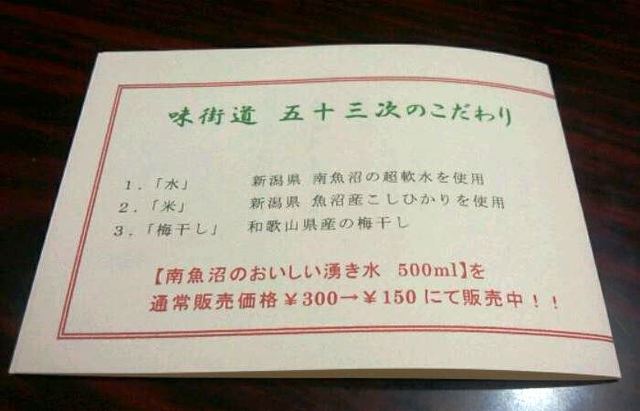 味街道 五十三次のこだわり
1．「水」 新潟県 南魚沼の超軟水を使用
2．「米」 新潟県 魚沼産こしひかりを使用
3．「梅干し」 和歌山県産の梅干し
【南魚沼のおいしい湧き水 500ml】を
通常販売価格￥300→￥150にて販売中！！